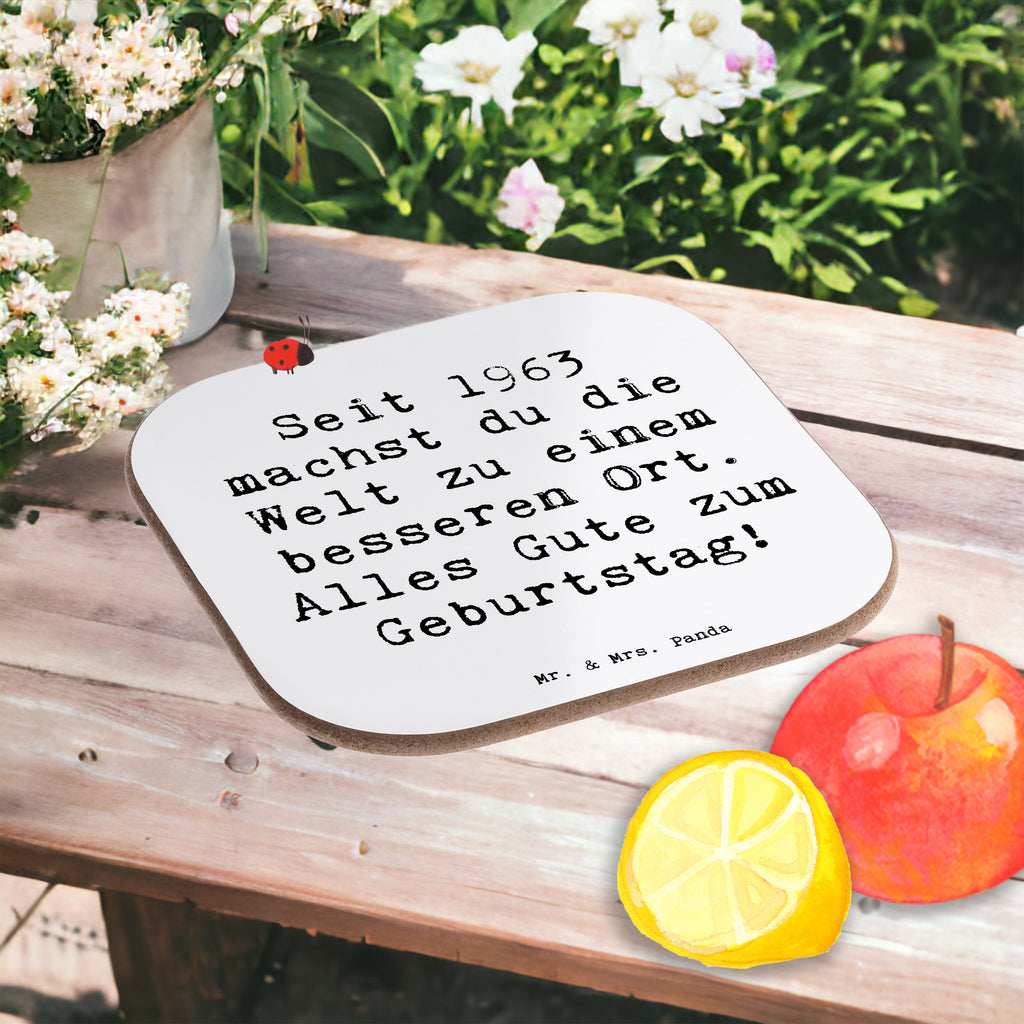 Seit 1963
machst du die
Welt zu einem
besseren Ort.
Alles Gute zum
Geburtstag!
Mr. & Mrs. Panda